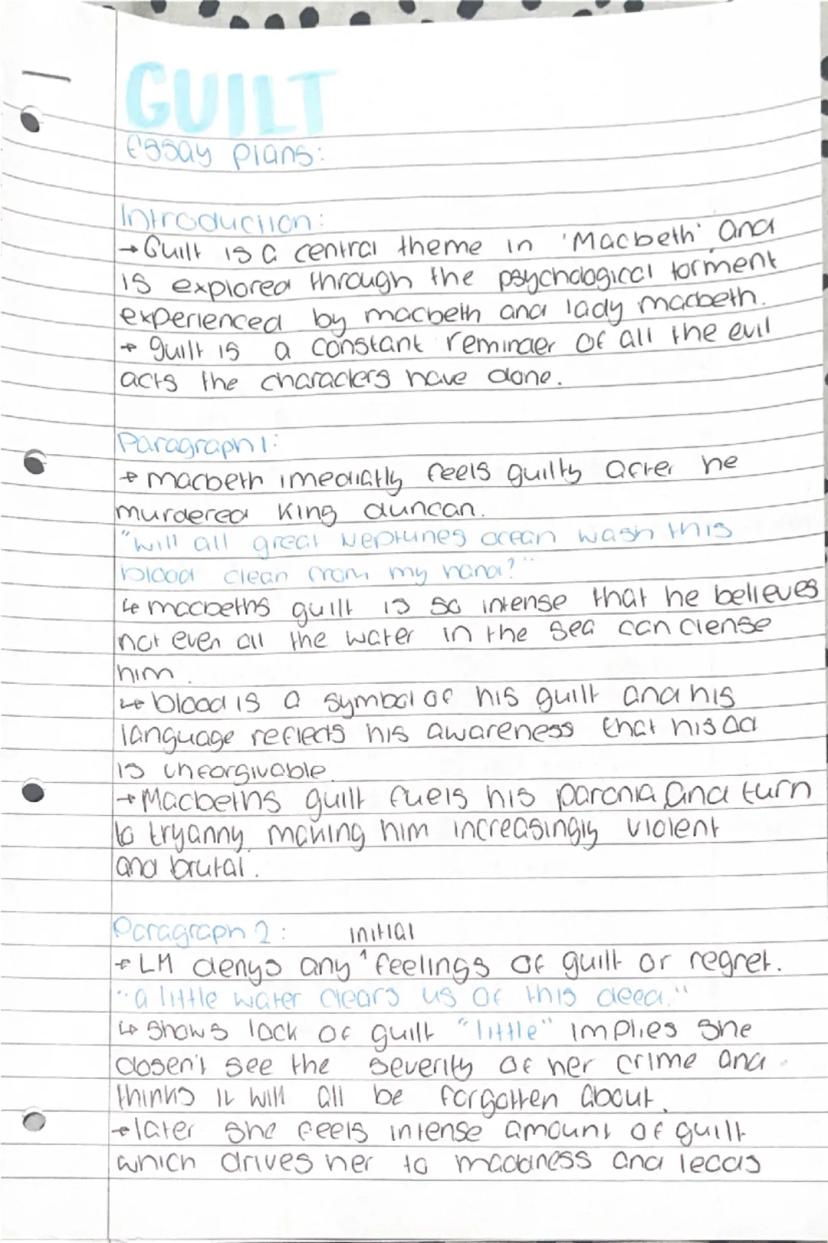 GUILT
essay plans:
Introduction:
→ Guilt is a central theme in 'Macbeth' and
is explored through the psychological torment
experienced by macbeth and lady macbeth.
→ guilt is a constant reminder of all the evil
acts the characters have done.
Paragraph 1:
→ macbeth imediatly feels guilty after he
murdered King duncan.
"will all great Neptunes ocean wash this
blood clean from my hand?"
↳ macbeths guilt is so intense that he believes
not even all the water in the sea can clense
him.
↳ blood is a symbol of his guilt and his
language reflects his awareness that his act
is unforgivable.
→ Macbeths guilt fuels his paronia, and turn
to tryanny, making him increasingly violent
and brutal.
Paragraph 2:
→ LM denys any ^ initial feelings of guilt or regret.
"a little water clears us of this deed."
↳ shows lack of guilt "little" implies she
dosen't see the severity of her crime and
thinks it will all be forgotten about.
→ later she feels intense amount of guilt
which drives her to maddness and leads